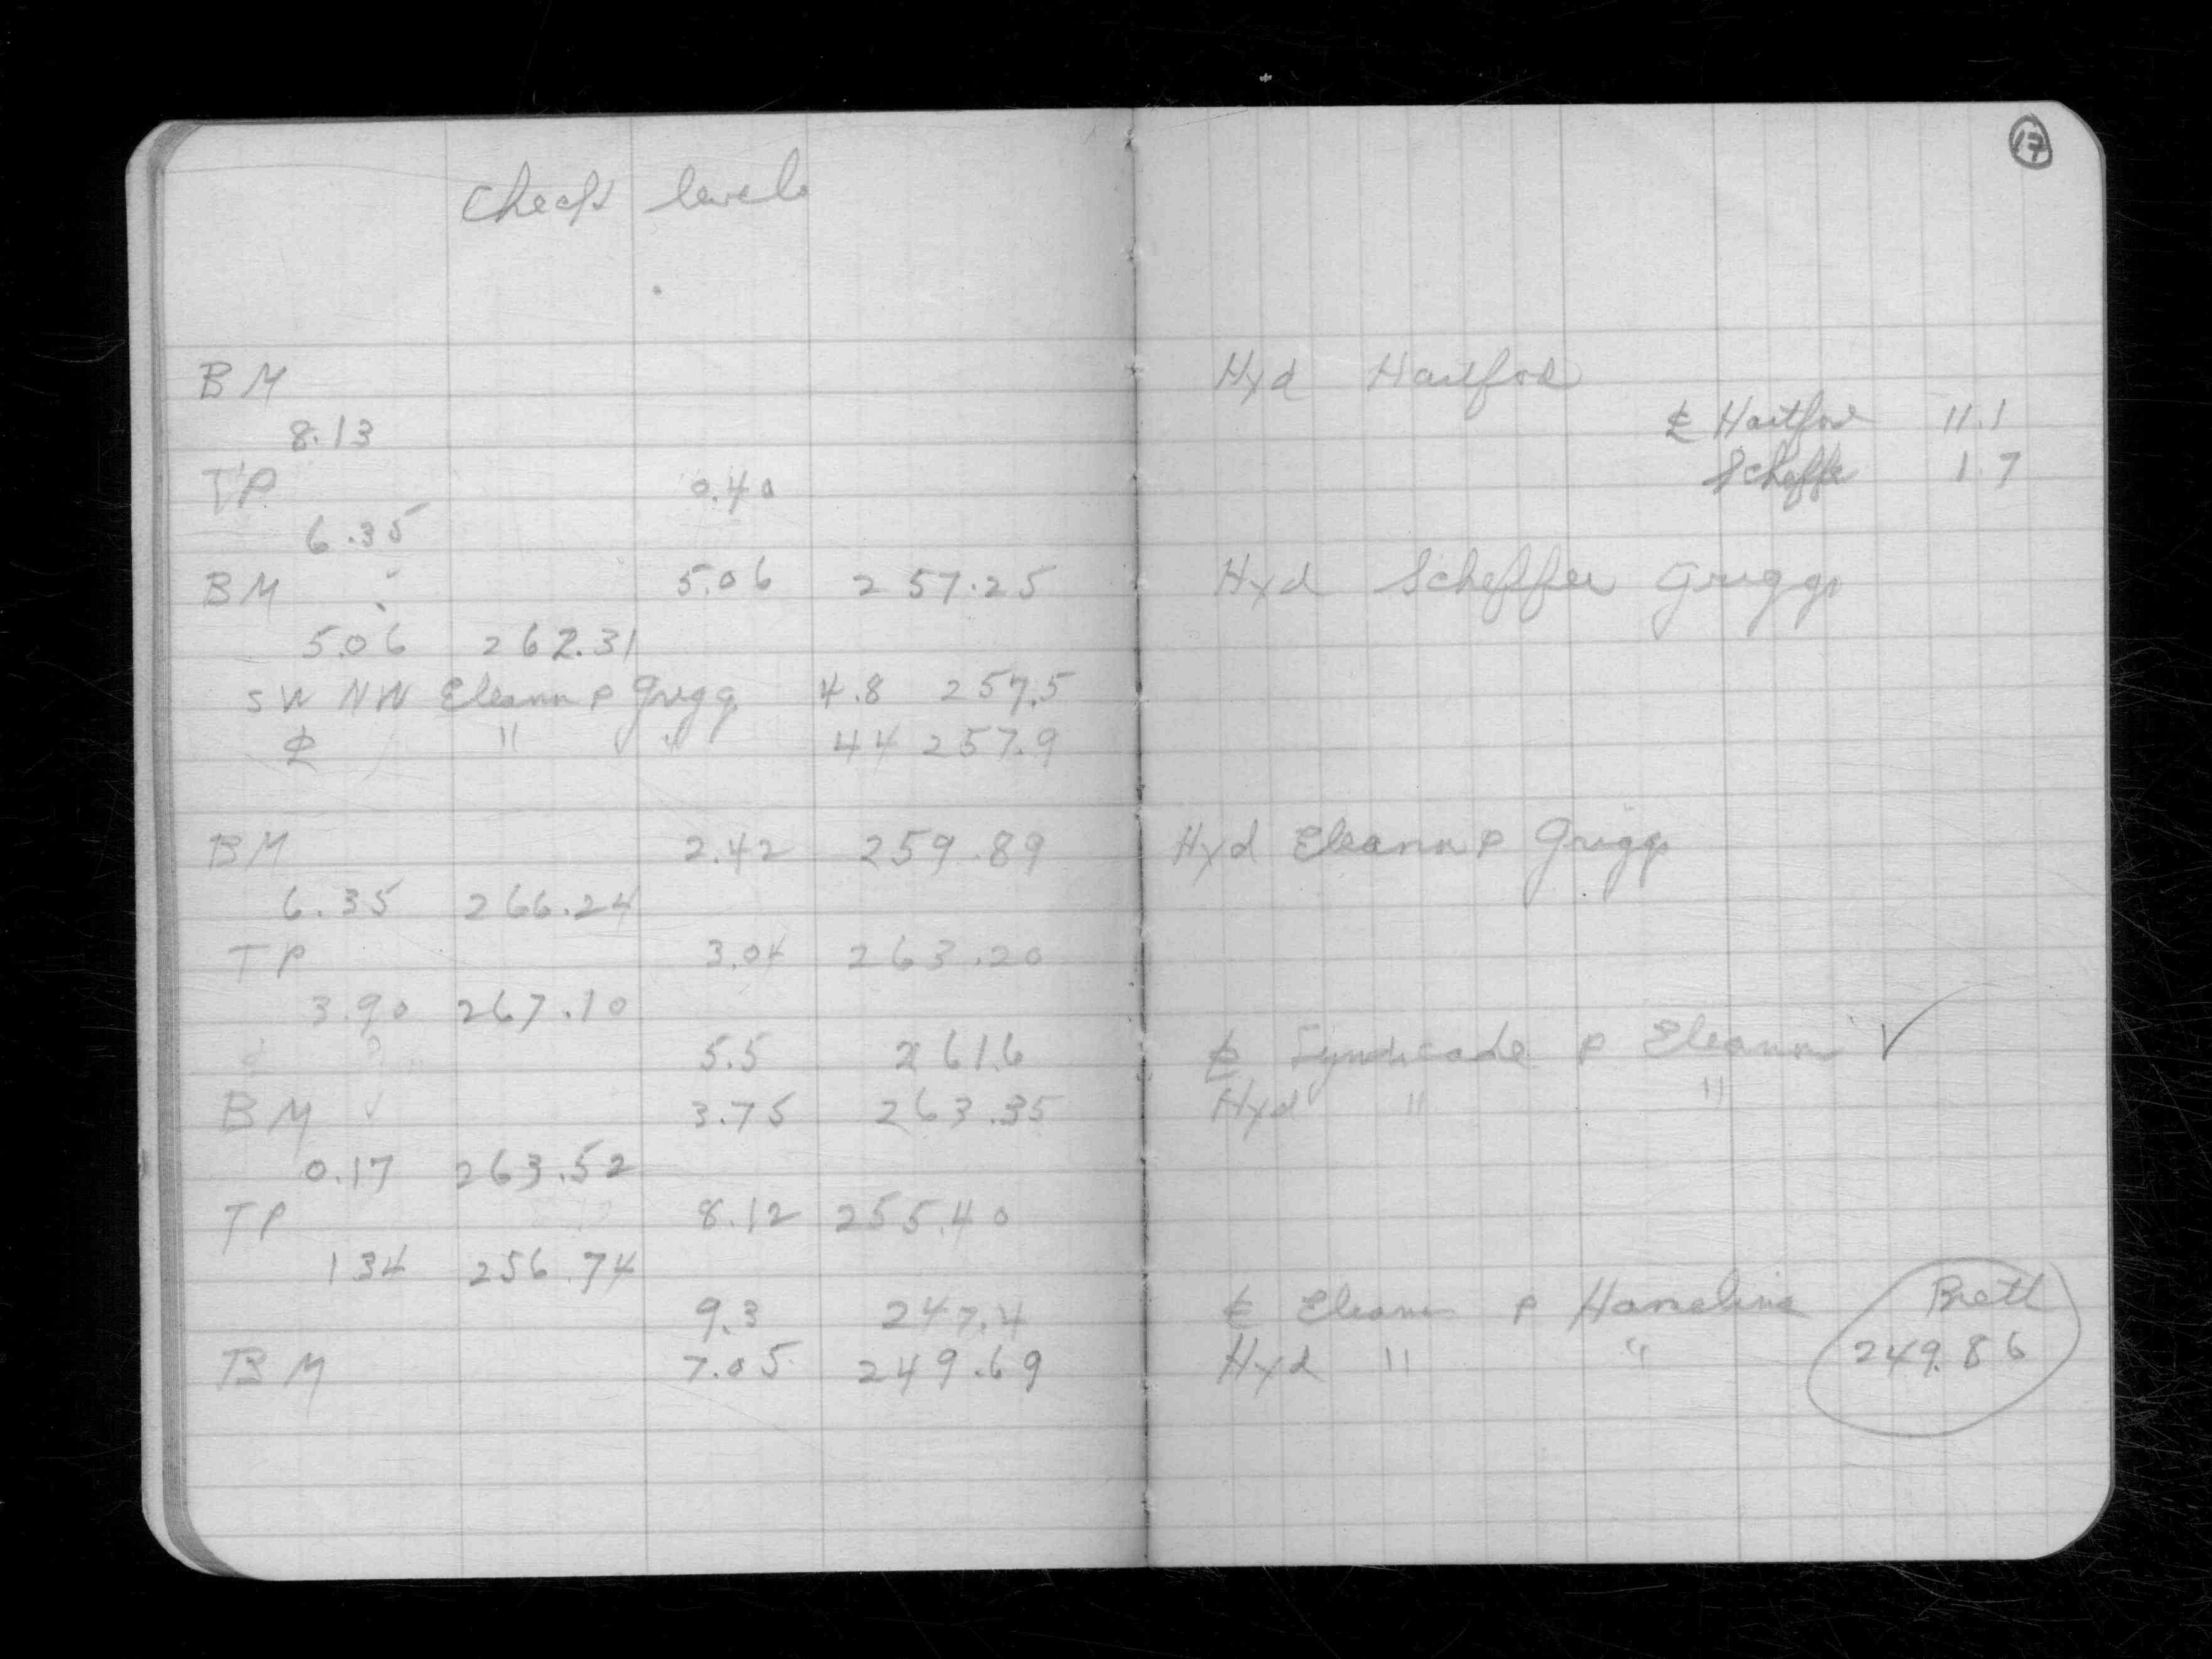 17
Check levels
BM Hyd Hartford
8.13 ℄ Hartford 11.1
TP 0.40 Scheffer 1.7
6.35
BM 5.06 257.25 Hyd Scheffer Griggs
5.06 262.31
SW NW Eleanor P Griggs 4.8 257.5
℄ " " 4.4 257.9
BM 2.42 259.89 Hyd Eleanor P Griggs
6.35 266.24
TP 3.04 263.20
3.90 267.10
5.5 261.6 ℄ Syndicate P Eleanor ✓
BM 3.75 263.35 Hyd " "
0.17 263.52
TP 8.12 255.40
134 256.74
9.3 247.4 ℄ Eleanor P Hameline
BM 7.05 249.69 Hyd " " 249.86